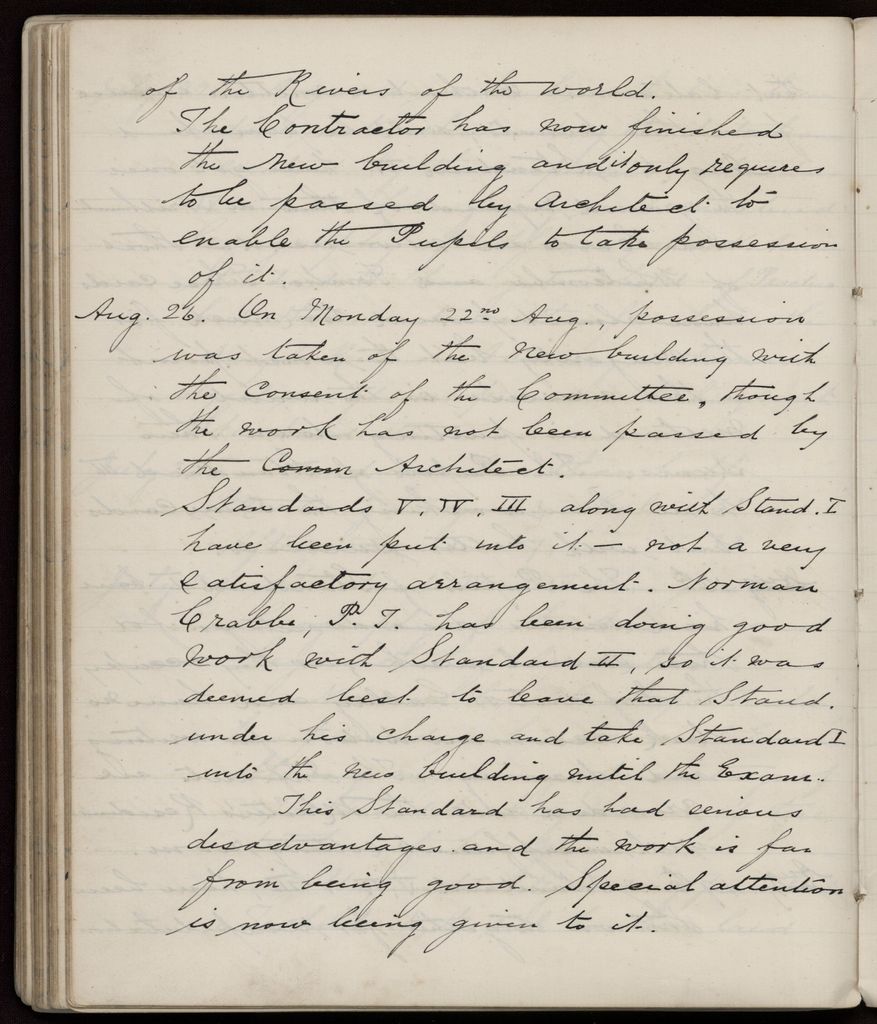 of the Rivers of the world.
The Contractor has now finished
the new building and it only requires
to be passed by Architect to
enable the Pupils to take possession
of it.
Aug. 26. On Monday 22nd Aug., possession
was taken of the new building with
the consent of the Committee, though
the work has not been passed by
the Comm Architect.
Standards V, IV, III along with Stand. I
have been put into it – not a very
satisfactory arrangement. Norman
Crabbe, P. T. has been doing good
work with Standard II, so it was
deemed best to leave that Stand.
under his charge and take Standard I
into the new building until the Exam.
This Standard has had serious
disadvantages and the work is far
from being good. Special attention
is now being given to it.